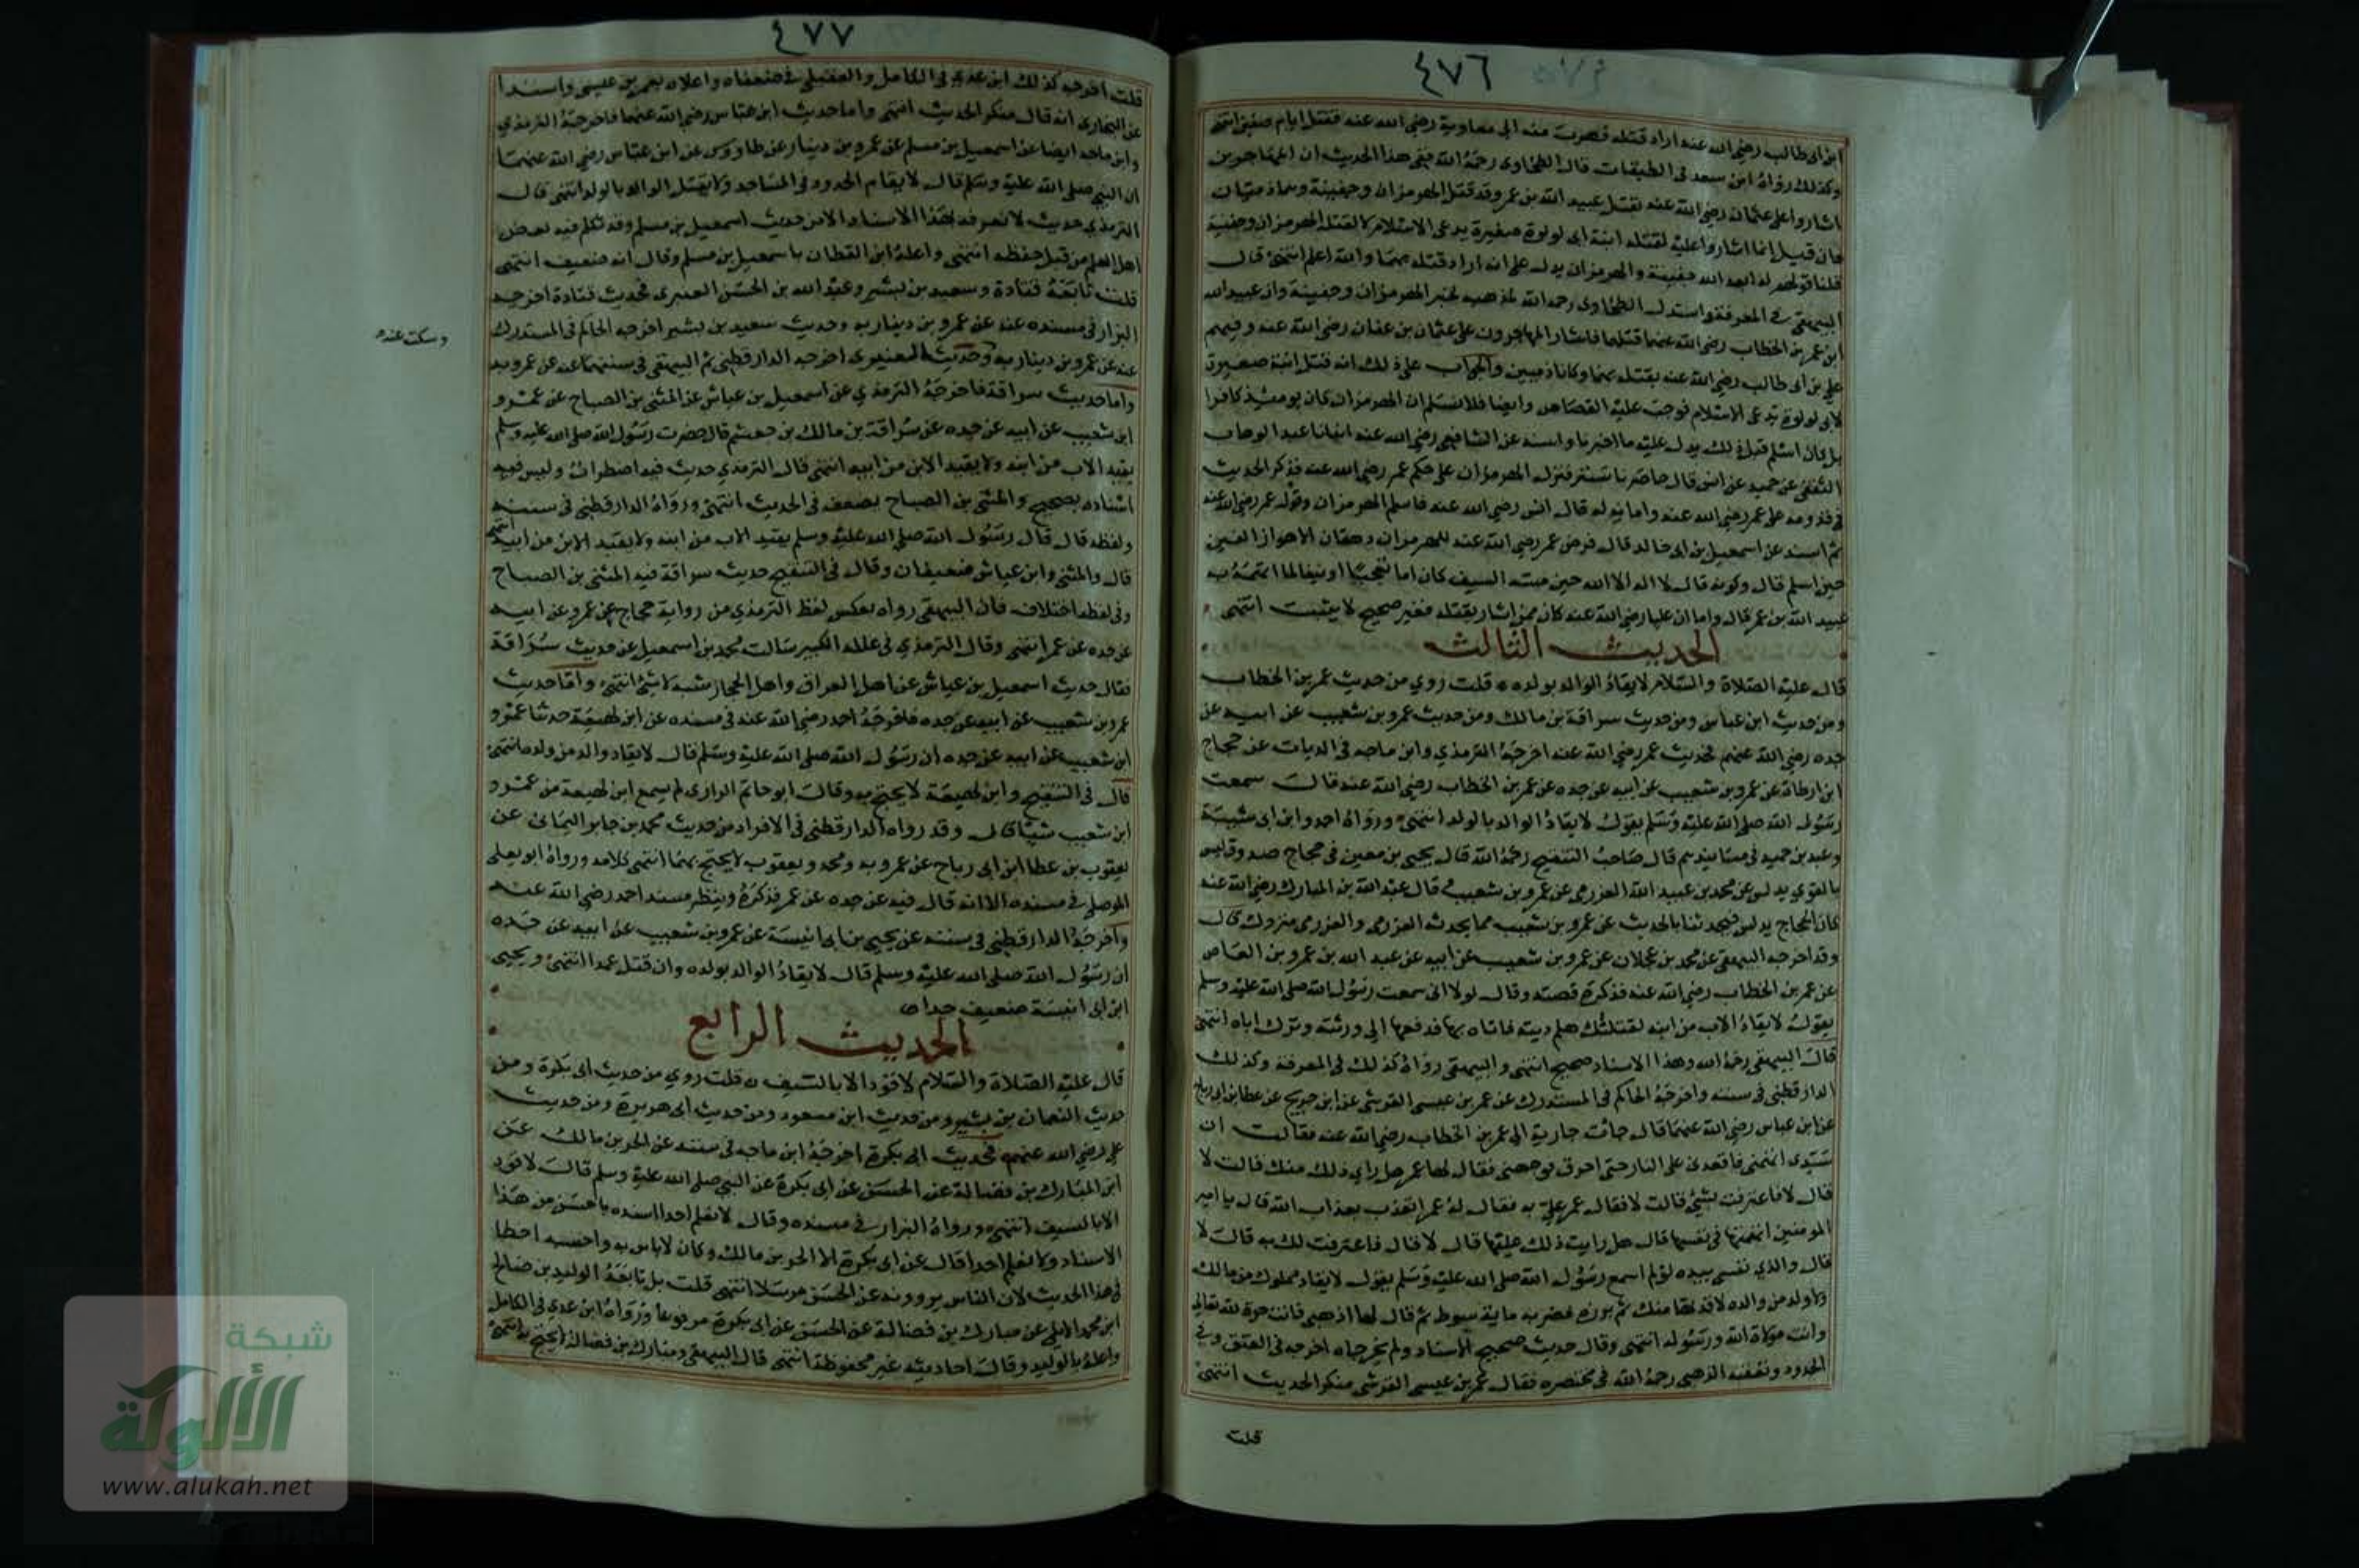 ٤٧٦
ابن ابى طالب رضي الله عنه اراد قتله فهرب منه الى معاوية رضي الله عنه فقتل ايام صفين انتهى
وكذلك رواه ابن سعد فى الطبقات قال الطحاوى رحمه الله ففى هذا الحديث ان المهاجرين
اشاروا على عثمان رضي الله عنه بقتل عبيد الله بن عمر وقد قتل الهرمزان وجفينة وهما ذميان
فان قيل انما اشاروا عليه لقتله ابنة ابى لولوة صغيرة تدعى الاسلام لا لقتله الهرمزان وجفينة
قلنا قولهم له ابعد الله جفينة والهرمزان يدل على انه اراد قتله بهما والله اعلم انتهى قال
البيهقى فى المعرفة واستدل الطحاوى رحمه الله لمذهبه بخبر الهرمزان وجفينة وان عبيد الله
ابن عمر بن الخطاب رضي الله عنهما قتلهما فاشار المهاجرون على عثمان بن عفان رضي الله عنه وفيهم
على بن ابى طالب رضي الله عنه بقتله بهما وكانا ذميين والجواب على ذلك انه قتل ابنة صغيرة
لابى لولوة تدعى الاسلام فوجب عليه القصاص وايضا فلا نسلم ان الهرمزان كان يومئذ كافرا
بل كان اسلم قبل ذلك يدل عليه ما اخبرنا واسند عن الشافعى رضي الله عنه انبانا عبد الوهاب
الثقفى عن حميد عن انس قال حاصرنا تستر فنزل الهرمزان على حكم عمر رضي الله عنه فذكر الحديث
فى قدومه على عمر رضي الله عنه وامانه له قال انس رضي الله عنه فاسلم الهرمزان وقوله عمر رضي الله عنه
ثم اسند عن اسمعيل بن ابى خالد قال فرض عمر رضي الله عنه للهرمزان دهقان الاهواز الفين
حين اسلم قال وكونه قال لا اله الا الله حين مسه السيف كان اما تعجبا او نفيا لما اتهمه به
عبيد الله بن عمر قال واما ان عليا رضي الله عنه كان ممن اشار بقتله فغير صحيح لا يثبت انتهى
الحديث الثالث
قال عليه الصلاة والسلام لا يقاد الوالد بولده قلت روي من حديث عمر بن الخطاب
ومن حديث ابن عباس ومن حديث سراقة بن مالك ومن حديث عمرو بن شعيب عن ابيه عن
جده رضي الله عنهم فحديث عمر رضي الله عنه اخرجه الترمذي وابن ماجه فى الديات عن حجاج
ابن ارطاة عن عمرو بن شعيب عن ابيه عن جده عن عمر بن الخطاب رضي الله عنه قال سمعت
رسول الله صلى الله عليه وسلم يقول لا يقاد الوالد بالولد انتهى ورواه احمد وابن ابى شيبة
وعبد بن حميد فى مسانيدهم قال صاحب التنقيح رحمه الله قال يحيى بن معين فى حجاج صدوق ليس
بالقوي يدلس عن محمد بن عبيد الله العزرمى عن عمرو بن شعيب قال عبد الله بن المبارك رضي الله عنه
كان الحجاج يدلس فيحدثنا بالحديث عن عمرو بن شعيب مما يحدثه العزرمى والعزرمى متروك قال
وقد اخرجه البيهقى عن محمد بن عجلان عن عمرو بن شعيب عن ابيه عن عبد الله بن عمرو بن العاص
عن عمر بن الخطاب رضي الله عنه فذكره قصته وقال لولا انى سمعت رسول الله صلى الله عليه وسلم
يقول لا يقاد الاب من ابنه لقتلتك هلم ديته فاتاه بها فدفعها الى ورثته وترك اباه انتهى
قال البيهقى رحمه الله وهذا الاسناد صحيح انتهى والبيهقى رواه كذلك فى المعرفة وكذلك
الدارقطنى فى سننه واخرجه الحاكم فى المستدرك عن عمر بن عيسى القرشى عن ابن جريج عن عطا بن ابى رباح
عن ابن عباس رضي الله عنهما قال جائت جارية الى عمر بن الخطاب رضي الله عنه فقالت ان
سيدى اتهمنى فاقعدنى على النار حتى احرق فرجى فقال لها عمر هل راى ذلك منك قالت لا
قال لا فاعترفت بشئ قالت لا فقال عمر علي به فقال له عمر اتعذب بعذاب الله قال يا امير
المومنين اتهمتها فى نفسها قال هل رايت ذلك عليها قال لا قال فاعترفت لك به قالت لا
قال والذي نفسى بيده لو لم اسمع رسول الله صلى الله عليه وسلم يقول لا يقاد مملوك من مالك
ولا ولد من والده لاقدتها منك ثم برزه فضربه ماية سوط ثم قال لها اذهبى فانت حرة لله تعالى
وانت مولاة الله ورسوله انتهى وقال حديث صحيح الاسناد ولم يخرجاه اخرجه فى العتق وفى
الحدود وتعقبه الذهبى رحمه الله فى مختصره فقال عمر بن عيسى القرشى منكر الحديث انتهى
قلت
٤٧٧
قلت اخرجه كذلك ابن عدي فى الكامل والعقيلى فى ضعفاه واعلاه بعمر بن عيسى واسندا
عن البخارى انه قال منكر الحديث انتهى واما حديث ابن عباس رضي الله عنهما فاخرجه الترمذي
وابن ماجه ايضا عن اسمعيل بن مسلم عن عمرو بن دينار عن طاووس عن ابن عباس رضي الله عنهما
ان النبي صلى الله عليه وسلم قال لا يقام الحدود فى المساجد ولا يقتل الوالد بالولد انتهى قال
الترمذي حديث لا نعرفه بهذا الاسناد الا من حديث اسمعيل بن مسلم وقد تكلم فيه بعض
اهل العلم من قبل حفظه انتهى واعله ابن القطان باسمعيل بن مسلم وقال انه ضعيف انتهى
قلت تابعه قتادة وسعيد بن بشير وعبد الله بن الحسن العنبرى فحديث قتادة اخرجه
البزار فى مسنده عنه عن عمرو بن دينار به وحديث سعيد بن بشير اخرجه الحاكم فى المستدرك
وسكت عنه
عنه عن عمرو بن دينار به وحديث العنبرى اخرجه الدارقطنى ثم البيهقى فى سننهما عنه عن عمرو به
واما حديث سراقة فاخرجه الترمذي عن اسمعيل بن عياش عن المثنى بن الصباح عن عمرو
ابن شعيب عن ابيه عن جده عن سراقة بن مالك بن جعشم قال حضرت رسول الله صلى الله عليه وسلم
يقيد الاب من ابنه ولا يقيد الابن من ابيه انتهى قال الترمذي حديث فيه اضطراب وليس فيه
اسناده بصحيح والمثنى بن الصباح يضعف فى الحديث انتهى ورواه الدارقطنى فى سننه
ولفظه قال قال رسول الله صلى الله عليه وسلم يقيد الاب من ابنه ولا يقيد الابن من ابيه انتهى
قال والمثنى وابن عياش ضعيفان وقال فى التنقيح حديث سراقة فيه المثنى بن الصباح
وفى لفظه اختلاف فان البيهقى رواه بعكس لفظ الترمذي من رواية حجاج عن عمرو عن ابيه
عن جده عن عمر انتهى وقال الترمذي فى علله الكبير سالت محمد بن اسمعيل عن حديث سراقة
فقال حديث اسمعيل بن عياش عن اهل العراق واهل الحجاز شبه لا شئ انتهى واما حديث
عمرو بن شعيب عن ابيه عن جده فاخرجه احمد رضي الله عنه فى مسنده عن ابن لهيعة حدثنا عمرو
ابن شعيب عن ابيه عن جده ان رسول الله صلى الله عليه وسلم قال لا يقاد والد من ولده انتهى
قال فى التنقيح وابن لهيعة لا يحتج به وقال ابو حاتم الرازى لم يسمع ابن لهيعة من عمرو
ابن شعيب شيئا قال وقد رواه الدارقطنى فى الافراد من حديث محمد بن جابر اليمانى عن
يعقوب بن عطا ابن ابى رباح عن عمرو به ومحمد ويعقوب لا يحتج بهما انتهى كلامه ورواه ابو يعلى
الموصلى فى مسنده الا انه قال فيه عن جده عن عمر فذكره وينظر مسند احمد رضي الله عنه
واخرجه الدارقطنى فى سننه عن يحيى بن ابى انيسة عن عمرو بن شعيب عن ابيه عن جده
ان رسول الله صلى الله عليه وسلم قال لا يقاد الوالد بولده وان قتل عمدا انتهى ويحيى
ابن ابى انيسة ضعيف جدا
الحديث الرابع
قال عليه الصلاة والسلام لا قود الا بالسيف قلت روي من حديث ابى بكرة ومن
حديث النعمان بن بشير ومن حديث ابن مسعود ومن حديث ابى هريرة ومن حديث
على رضي الله عنهم فحديث ابى بكرة اخرجه ابن ماجه فى سننه عن الحر بن مالك عن
ابن المبارك بن فضالة عن الحسن عن ابى بكرة عن النبي صلى الله عليه وسلم قال لا قود
الا بالسيف انتهى ورواه البزار فى مسنده وقال لا نعلم احدا اسنده باحسن من هذا
الاسناد ولا نعلم احدا قال عن ابى بكرة الا الحر بن مالك وكان لا باس به واحسبه اخطا
فى هذا الحديث لان الناس يروونه عن الحسن مرسلا انتهى قلت بل تابعه الوليد بن صالح
ابن محمد الايلى عن مبارك بن فضالة عن الحسن عن ابى بكرة مرفوعا ورواه ابن عدي فى الكامل
واعله بالوليد وقال احاديثه غير محفوظة انتهى قال البيهقى ومبارك بن فضالة لا يحتج به انتهى
شبكة
الألوكة
www.alukah.net